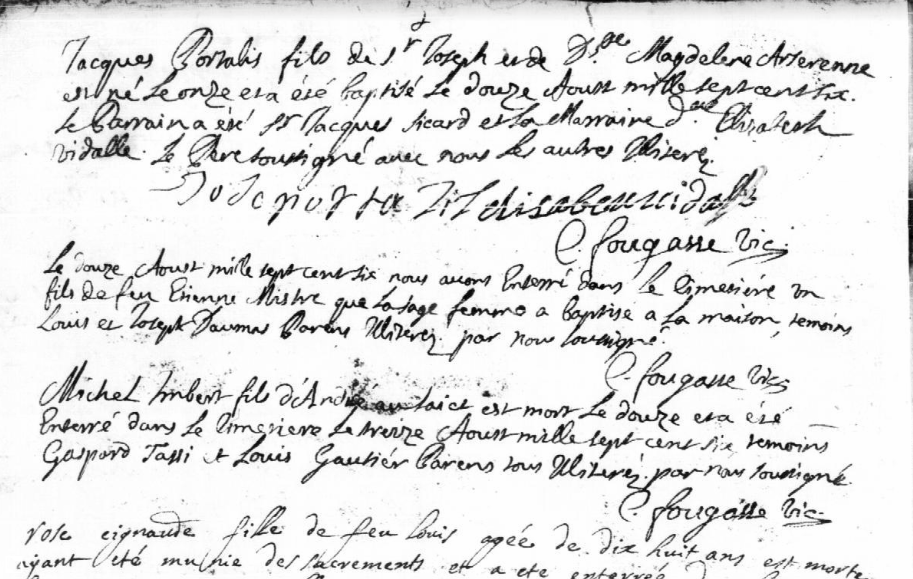 Jacques Portalis fils de Sr Joseph et de Dlle Magdelene Arterenne
est né Le onze et a été baptisé Le douze Aoust mille sept cent six.
Le Parrain a été Sr Jacques Sicard et La Marraine dlle Elizabeth
vidalle. Le Pere soussigné avec nous Les autres Illiterez
elisabeu uidalle
C. fougasse Vic.
Le douze Aoust mille sept cent six nous avons Enterré dans le Cimetiére un
fils de feu Etienne Mistre que La sage femme a baptisé a La maison, temoins
Louis et Joseph Daumas Parens Illiterez par nous soussigné.
C. fougasse Vic.
Michel Imbert fils d'André au laict est mort Le douze et a été
Enterré dans Le Cimetiere Le treize Aoust mille sept cent six, temoins
Gaspard Tassi et Louis Gautiér Parens tous Illiterez. par nous soussigné
C. fougasse Vic.
rose eignaude fille de feu louis agée de dix huit ans est morte
ayant été munie des sacrements et a ete enterrée